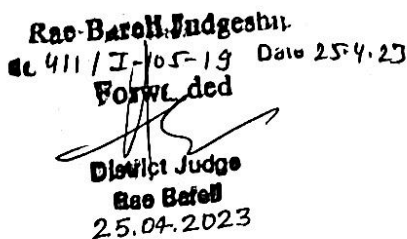 Rae-Bareli Judgeship
411 / I-105-19 Date 25.4.23
Forwarded
District Judge
Rae Bareli
25.04.2023